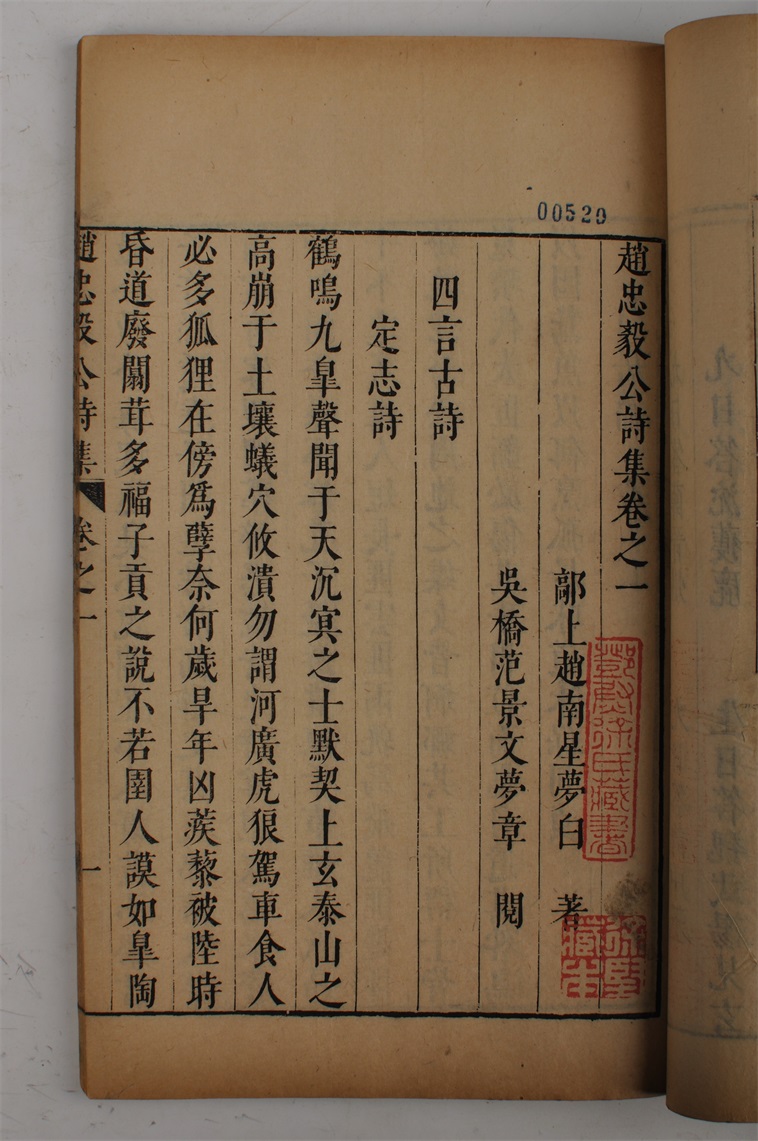 00529
趙忠毅公詩集卷之一
鄗上趙南星夢白 著
吳橋范景文夢章 閱
四言古詩
定志詩
鶴鳴九臯聲聞于天沉寘之士默契上玄泰山之
高崩于土壤蟻穴攸潰勿謂河廣虎狼駕車食人
必多狐狸在傍爲孽奈何歲旱年凶蒺藜被陸時
昏道廢闒茸多福子貢之說不若圉人謨如臯陶
趙忠毅公詩集 卷之一
一